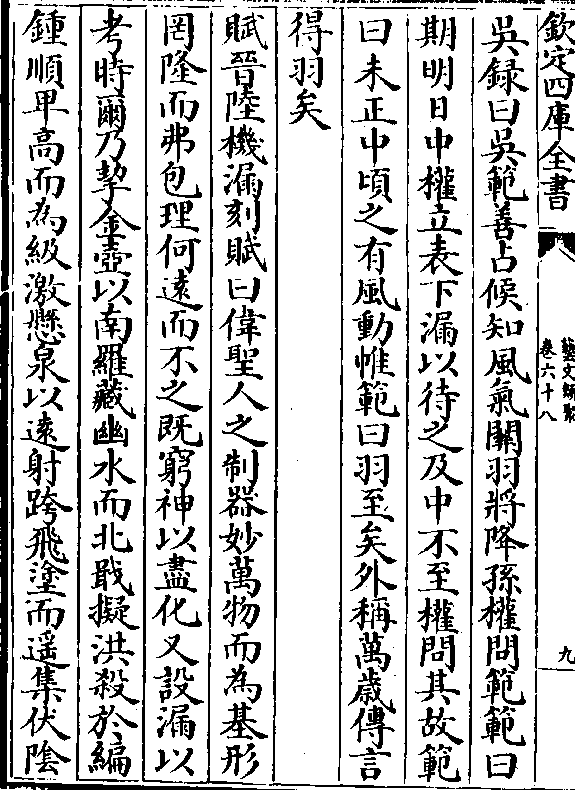 欽定四庫全書
藝文類聚
卷六十八
九
吳録曰吳範善占候知風氣關羽將降孫權問範範曰
期明日中權立表下漏以待之及中不至權問其故範
曰未正中頃之有風動帷範曰羽至矣外稱萬歳傳言
得羽矣
賦晉陸機漏刻賦曰偉聖人之制器妙萬物而為基形
罔隆而弗包理何遠而不之既窮神以盡化又設漏以
考時爾乃挈金壺以南羅藏幽水而北戢擬洪殺於編
鍾順卑高而為級激懸泉以逺射跨飛塗而遥集伏隂